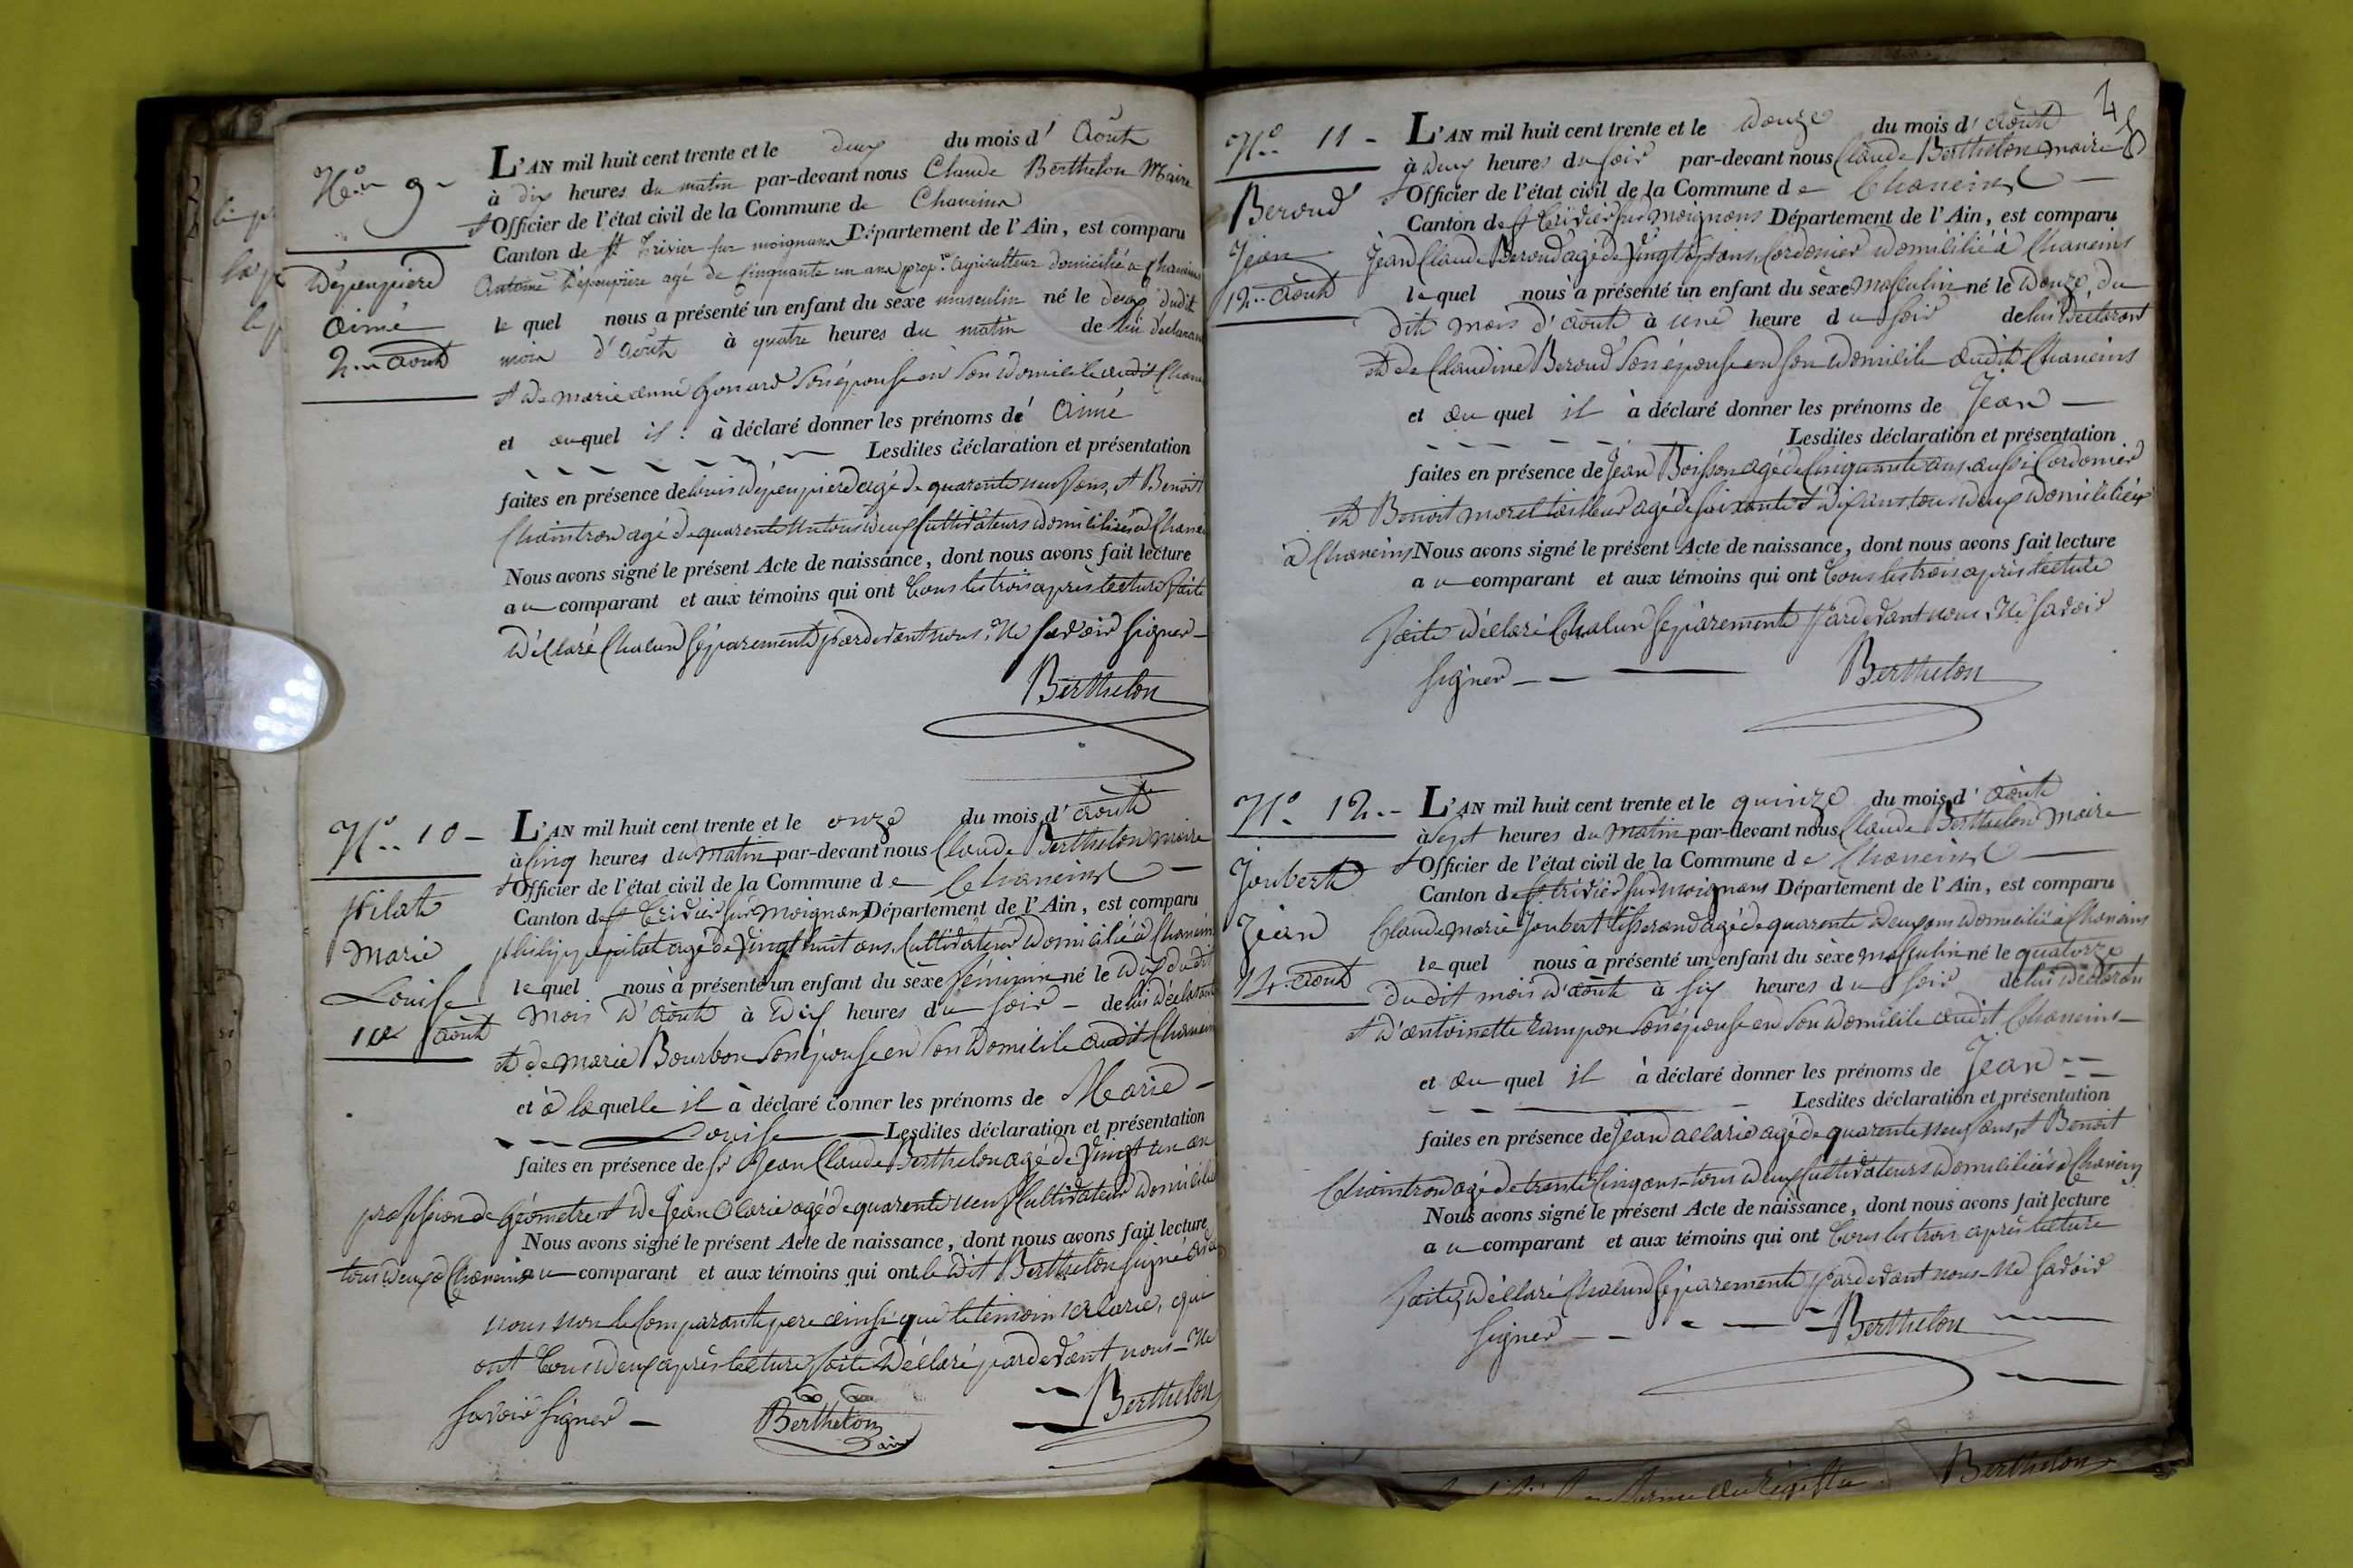 N.° 9
Dépeupiere
Aimé
2. Aout
L'AN mil huit cent trente et le deux du mois d' Août
à dix heures du matin par-devant nous Claude Berthelon Maire
et Officier de l'état civil de la Commune de Chaneins
Canton de St Trivier sur moignans Département de l'Ain, est comparu
Antoine Dépeupière agé de cinquante un ans prop.re agriculteur domicilié à Chaneins
le quel nous a présenté un enfant du sèxe masculin né le deux dudit
mois d'août à quatre heures du matin de lui déclarant
et de marie anne Gonard son épouse en son domicile audit Chaneins
et auquel il à déclaré donner les prénoms de Aimé
Lesdites déclaration et présentation
faites en présence de louis dépeupiere agé de quarante neuf ans, et Benoit
Chaintron agé de quarante un tous deux Cultivateurs domiciliés à Chaneins
Nous avons signé le présent Acte de naissance, dont nous avons fait lecture
au comparant et aux témoins qui ont tous les trois après lecture faite
déclaré Chacun séparement pardevant nous, Ne savoir signer
Berthelon
N.° 10
Pilat
Marie
Louise
10 août
L'AN mil huit cent trente et le onze du mois d' août
à cinq heures du matin par-devant nous Claude Berthelon maire
et Officier de l'état civil de la Commune de Chaneins
Canton de St Trivier sur Moignans Département de l'Ain, est comparu
philippe pilat agé de vingt huit ans, Cultivateur domicilié à Chaneins
lequel nous à présenté un enfant du sèxe féminin né le dix dudit
mois d'août à dix heures du soir de lui déclarant
et de marie Bourbon son épouse en son domicile audit Chaneins
et à laquelle il à déclaré donner les prénoms de Marie
Louise Lesdites déclaration et présentation
faites en présence de sr Jean Claude Berthelon agé de vingt un an
profession de Géometre et de Jean alarie agé de quarante neuf Cultivateur domiciliés
tous deux à Chaneins Nous avons signé le présent Acte de naissance, dont nous avons fait lecture
au comparant et aux témoins qui ont le dit Berthelon signé avec
nous non le Comparant pere ainsi que le témoin alarie, qui
ont tous deux après lecture faite déclaré pardevant nous Ne
savoir signer
Berthelon
Berthelon
4
N.° 11
Beroud
Jean
12 août
L'AN mil huit cent trente et le douze du mois d' août
à deux heures du soir par-devant nous Claude Berthelon maire
et Officier de l'état civil de la Commune de Chaneins
Canton de St Trivier sur Moignans Département de l'Ain, est comparu
Jean Claude Beroud agé de vingt sept ans, Cordonier domicilié à Chaneins
lequel nous à présenté un enfant du sèxe Masculin né le douze, du
dit mois d'août à une heure du soir de lui déclarant
et de Claudine Beroud son épouse en son domicile audit Chaneins
et au quel il à déclaré donner les prénoms de Jean
Lesdites déclaration et présentation
faites en présence de Jean Boisson agé de Cinquante ans, aussi Cordonier
et Benoit morel tailleur agé de soixante et dix ans, tous deux domiciliés
à Chaneins Nous avons signé le présent Acte de naissance, dont nous avons fait lecture
au comparant et aux témoins qui ont tous les trois après lecture
faite déclaré Chacun séparement pardevant nous, Ne savoir
signer
Berthelon
N.° 12
Joubert
Jean
14 août
L'AN mil huit cent trente et le quinze du mois d' août
à sept heures du matin par-devant nous Claude Berthelon Maire
et Officier de l'état civil de la Commune de Chaneins
Canton de St trivier sur moignans Département de l'Ain, est comparu
Claude Marie Joubert tisserand agé de quarante deux ans domicilié à Chaneins
lequel nous à présenté un enfant du sèxe masculin né le quatorze
dudit mois d'août à six heures du soir de lui déclarant
et d'antoinette rampon son épouse en son domicile audit Chaneins
et au quel il à déclaré donner les prénoms de Jean
Lesdites déclaration et présentation
faites en présence de Jean allarie agé de quarante neuf ans, et Benoit
Chaintron agé de trente Cinq ans tous deux Cultivateurs domiciliés à Chaneins
Nous avons signé le présent Acte de naissance, dont nous avons fait lecture
au comparant et aux témoins qui ont tous les trois après lecture
faite, déclaré Chacun séparement pardevant nous Ne savoir
signer
Berthelon
Berthelon